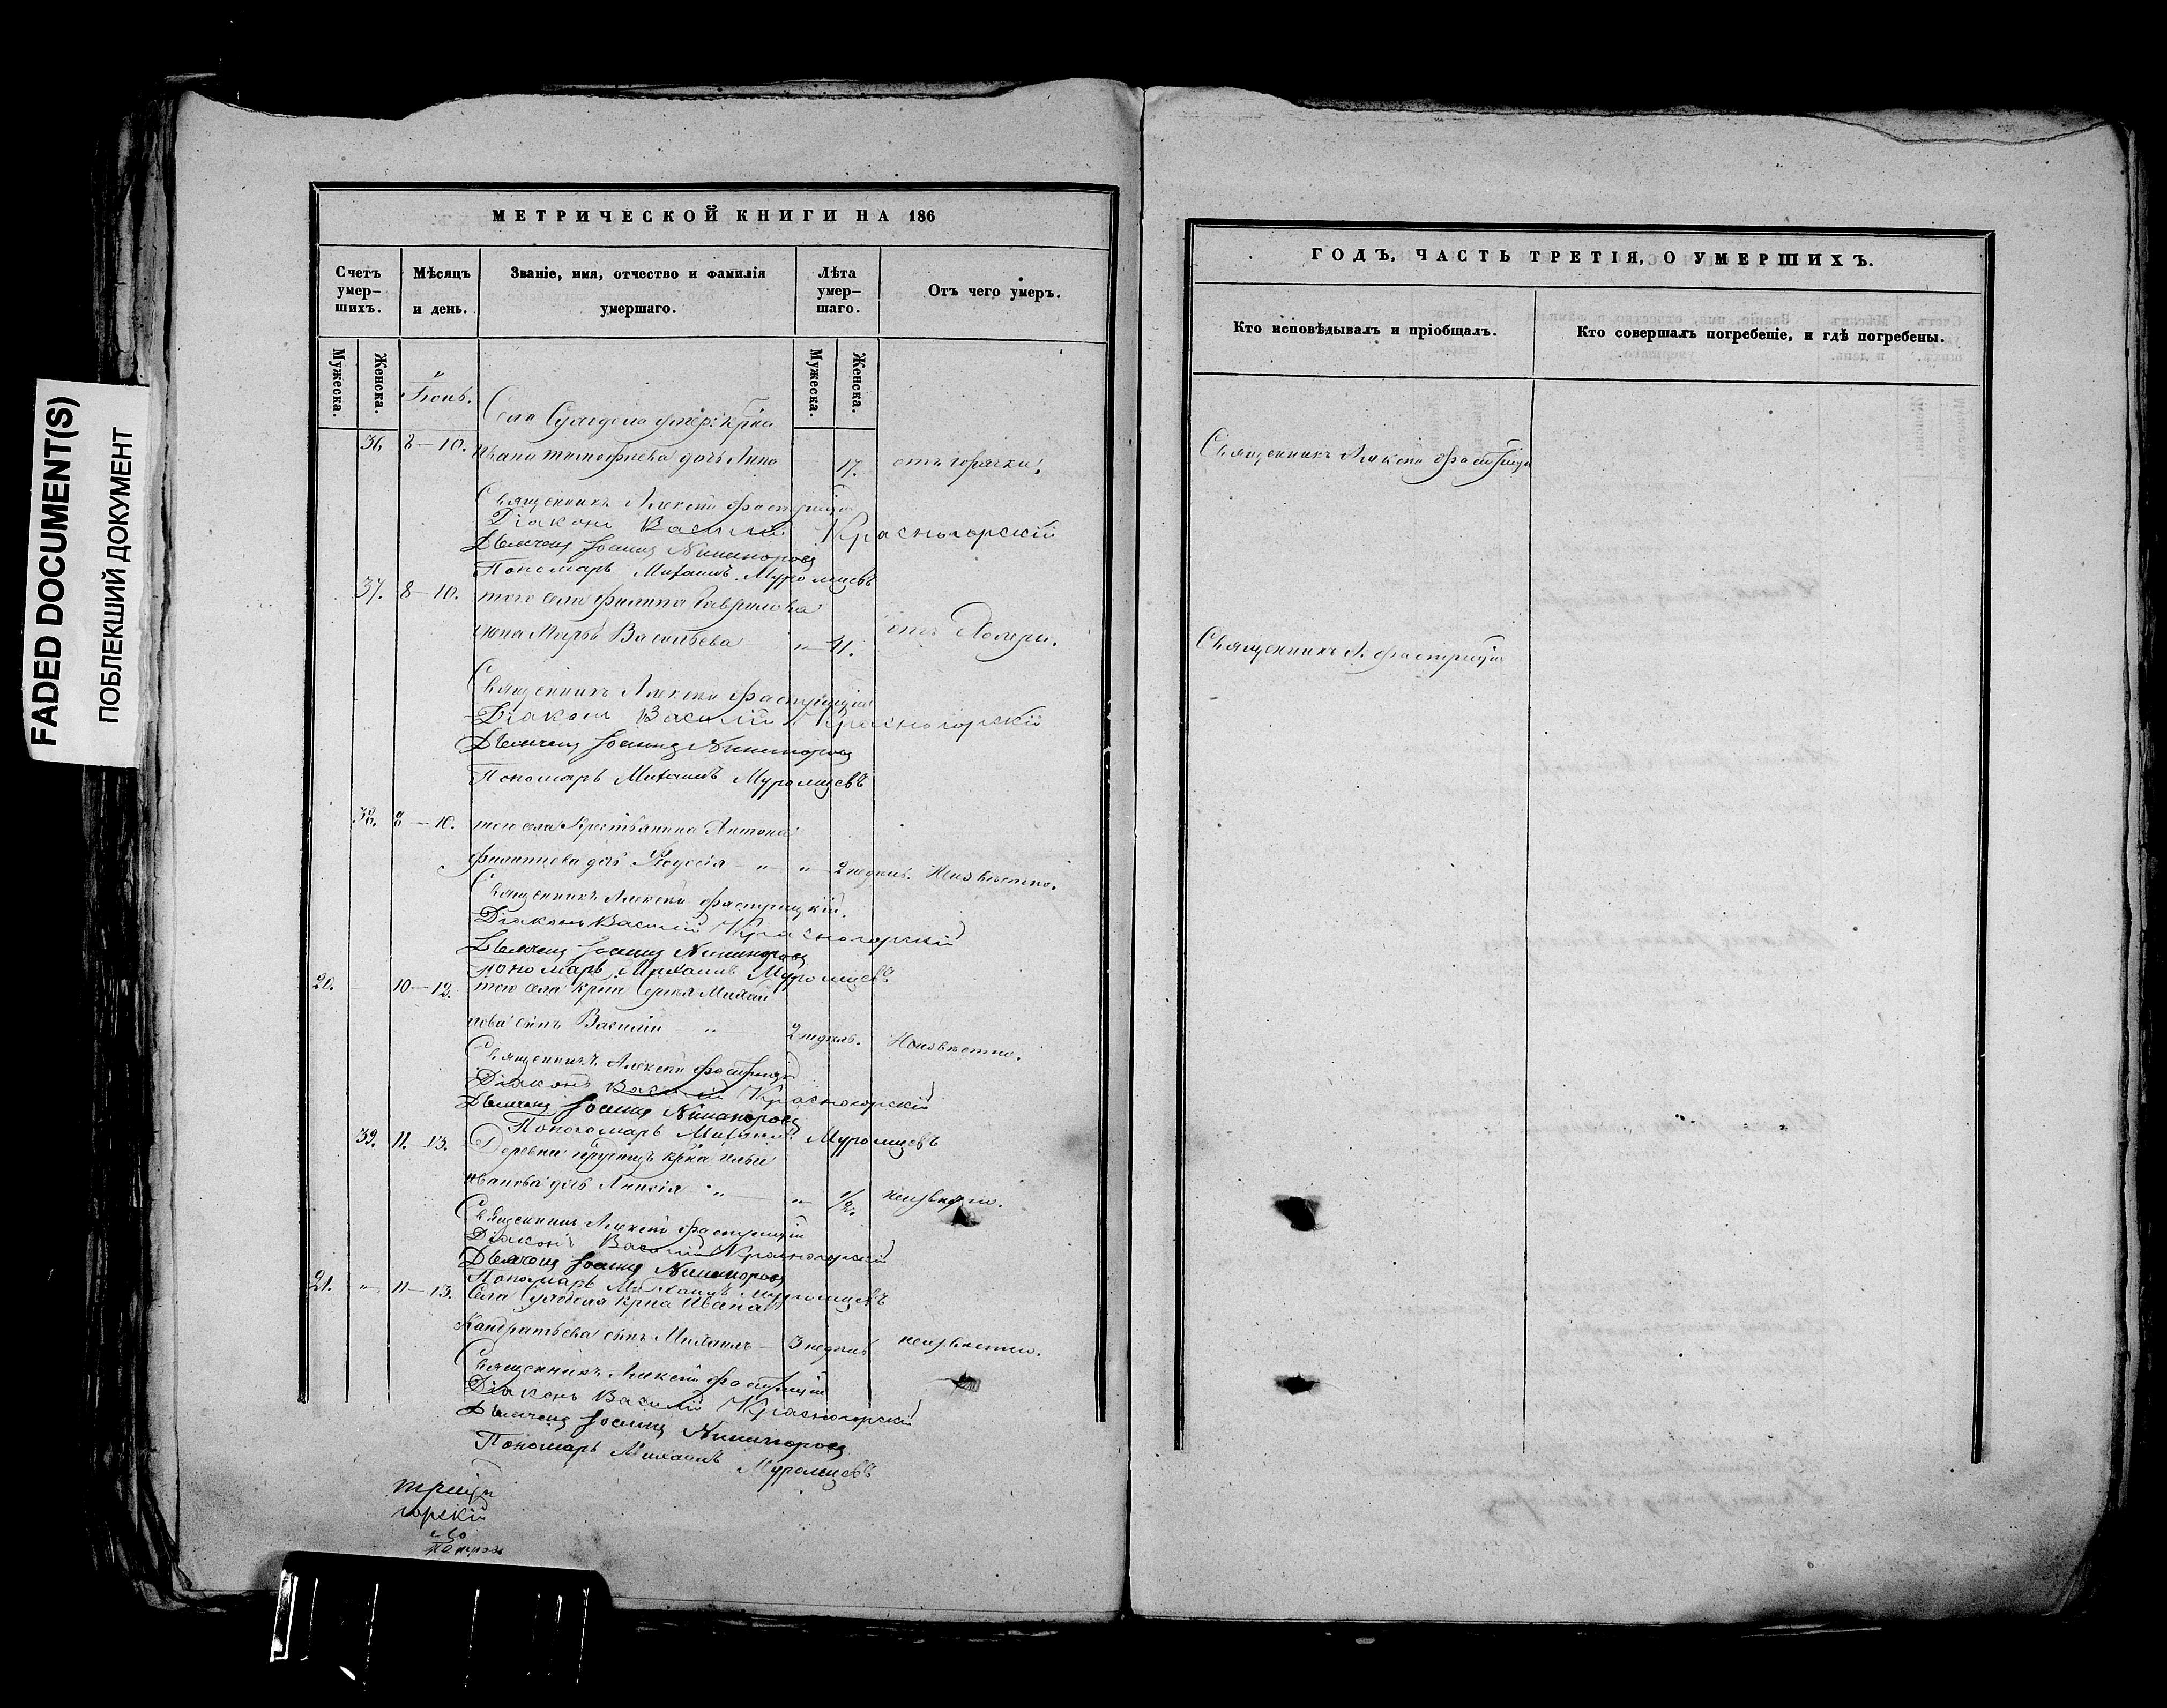 FADED DOCUMENT(S)
ПОБЛЕКШИЙ ДОКУМЕНТ
МЕТРИЧЕСКОЙ КНИГИ НА 186
Счетъ умер–шихъ.
Мѣсяцъ и день.
Званіе, имя, отчество и фамилія умершаго.
Лѣта умер–шаго.
Отъ чего умеръ.
Мужеска.
Женска.
Мужеска.
Женска.
Іюнь.
Села
36 8–10. Ивана Тимофеева дочь Анна 17. отъ горячки.
Священникъ Алексѣй
Діаконъ Василій Красногорскій
Дьячекъ Іоаннъ Никаноровъ
Пономарь Михаилъ Муромцевъ
37. 8–10. того села Филипа Гаврилова
жена Марья Васильева „ 41. отъ Холеры.
Священникъ Алексѣй
Діаконъ Василій Красногорскій
Дьячекъ Іоаннъ Никаноровъ
Пономарь Михаилъ Муромцевъ
38. 8–10. того села Крестьянина Антона
Филипиева дочь Ѳедосія „ „ 2 недѣль. Неизвѣстно.
Священникъ Алексѣй
Діаконъ Василій Красногорскій
Дьячекъ Іоаннъ Никаноровъ
Пономарь Михаилъ Муромцевъ
20. 10–12. того села крна Сергѣя Михай
лова сынъ Василій „ 2 недѣль. Неизвѣстно.
Священникъ Алексѣй
Діаконъ Василій Красногорскій
Дьячекъ Іоаннъ Никаноровъ
Пономарь Михаилъ Муромцевъ
39. 11–13. Деревни крна Ильи
Иванова дочь Анисія „ „ 1/2. неизвѣстно.
Священникъ Алексѣй
Діаконъ Василій Красногорскій
Дьячекъ Іоаннъ Никаноровъ
Пономарь Михаилъ Муромцевъ
21. „ 11–13. Села крна Ивана
Кандратьева сынъ Михаилъ 3 недѣль неизвѣстно.
Священникъ Алексѣй
Діаконъ Василій Красногорскій
Дьячекъ Іоаннъ Никаноровъ
Пономарь Михаилъ Муромцевъ
горскій
ГОДЪ, ЧАСТЬ ТРЕТІЯ, О УМЕРШИХЪ.
Кто исповѣдывалъ и пріобщалъ.
Кто совершалъ погребеніе, и гдѣ погребены.
Священникъ Алексѣй
Священникъ А.